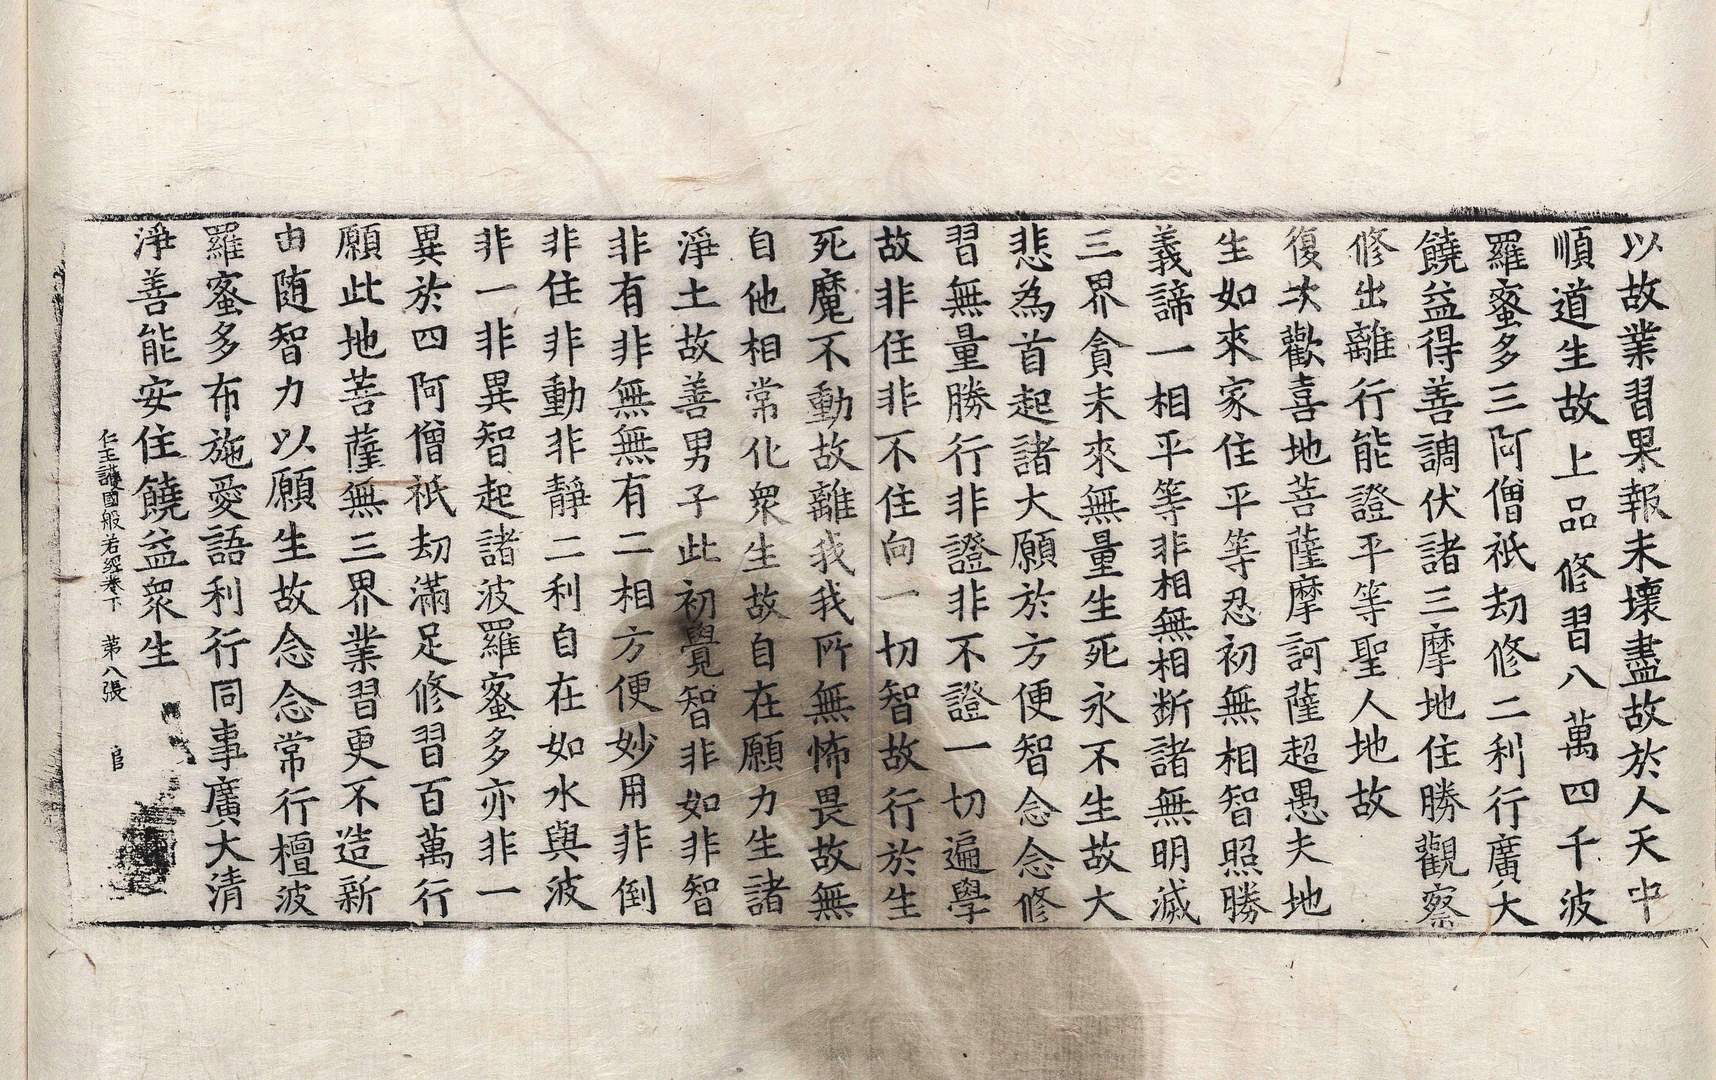 以故業習果報未壞盡故於人天中
順道生故上品修習八萬四千波
羅蜜多三阿僧祇劫修二利行廣大
饒益得善調伏諸三摩地住勝觀察
修出離行能證平等聖人地故
復次歡喜地菩薩摩訶薩超愚夫地
生如來家住平等忍初無相智照勝
義諦一相平等非相無相斷諸無明滅
三界貪未來無量生死永不生故大
悲為首起諸大願於方便智念念修
習無量勝行非證非不證一切遍學
故非住非不住向一切智故行於生
死魔不動故離我我所無怖畏故無
自他相常化衆生故自在願力生諸
淨土故善男子此初覺智非如非智
非有非無無有二相方便妙用非倒
非住非動非靜二利自在如水與波
非一非異智起諸波羅蜜多亦非一
異於四阿僧祇劫滿足修習百萬行
願此地菩薩無三界業習更不造新
由随智力以願生故念念常行檀波
羅蜜多布施愛語利行同事廣大清
淨善能安住饒益衆生
仁王護國般若經卷下 第八張 官